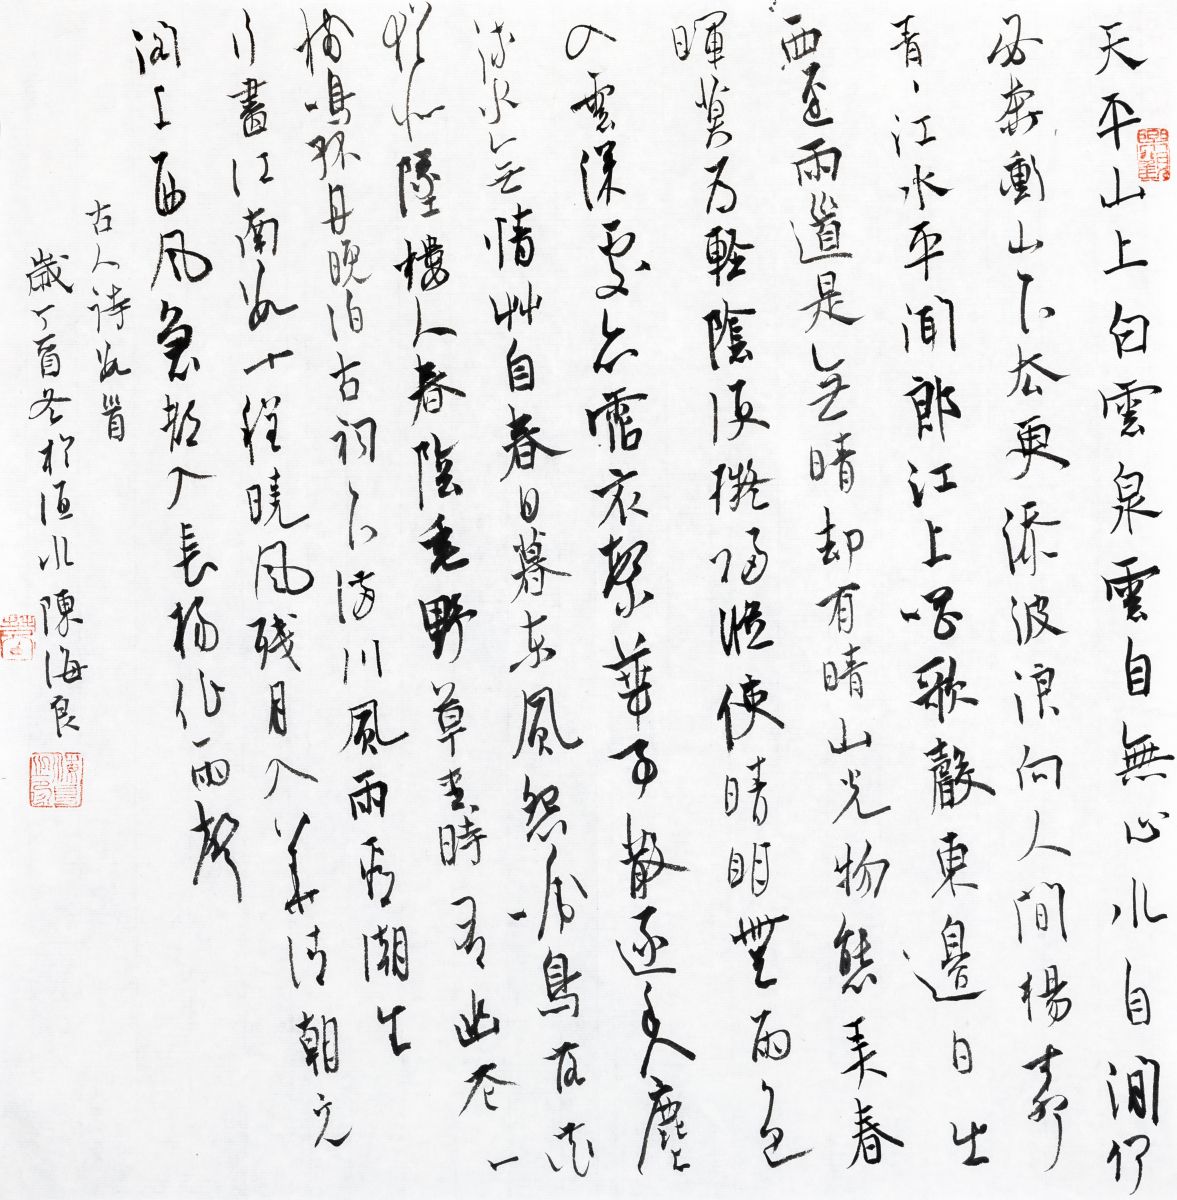 天平山上白雲泉雲自無心水自閒何
必奔衝山下去更添波浪向人間楊柳
青々江水平聞郎江上唱歌聲東邊日出
西邊雨道是無晴却有晴山光物態弄春
暉莫为輕陰便擬歸縱使晴明無雨色
入雲深處亦霑衣繁華事散逐香塵
流水無情艸自春日暮东風怨啼鳥落花
猶似墜樓人春陰垂野草青時有幽花一
樹明孤舟晚泊古祠下滿川風雨看潮生
行盡江南數十程曉風殘月入華清朝元
閣上西風急都入長楊作雨聲
古人詩數首
歲丁酉冬於恒水陳海良